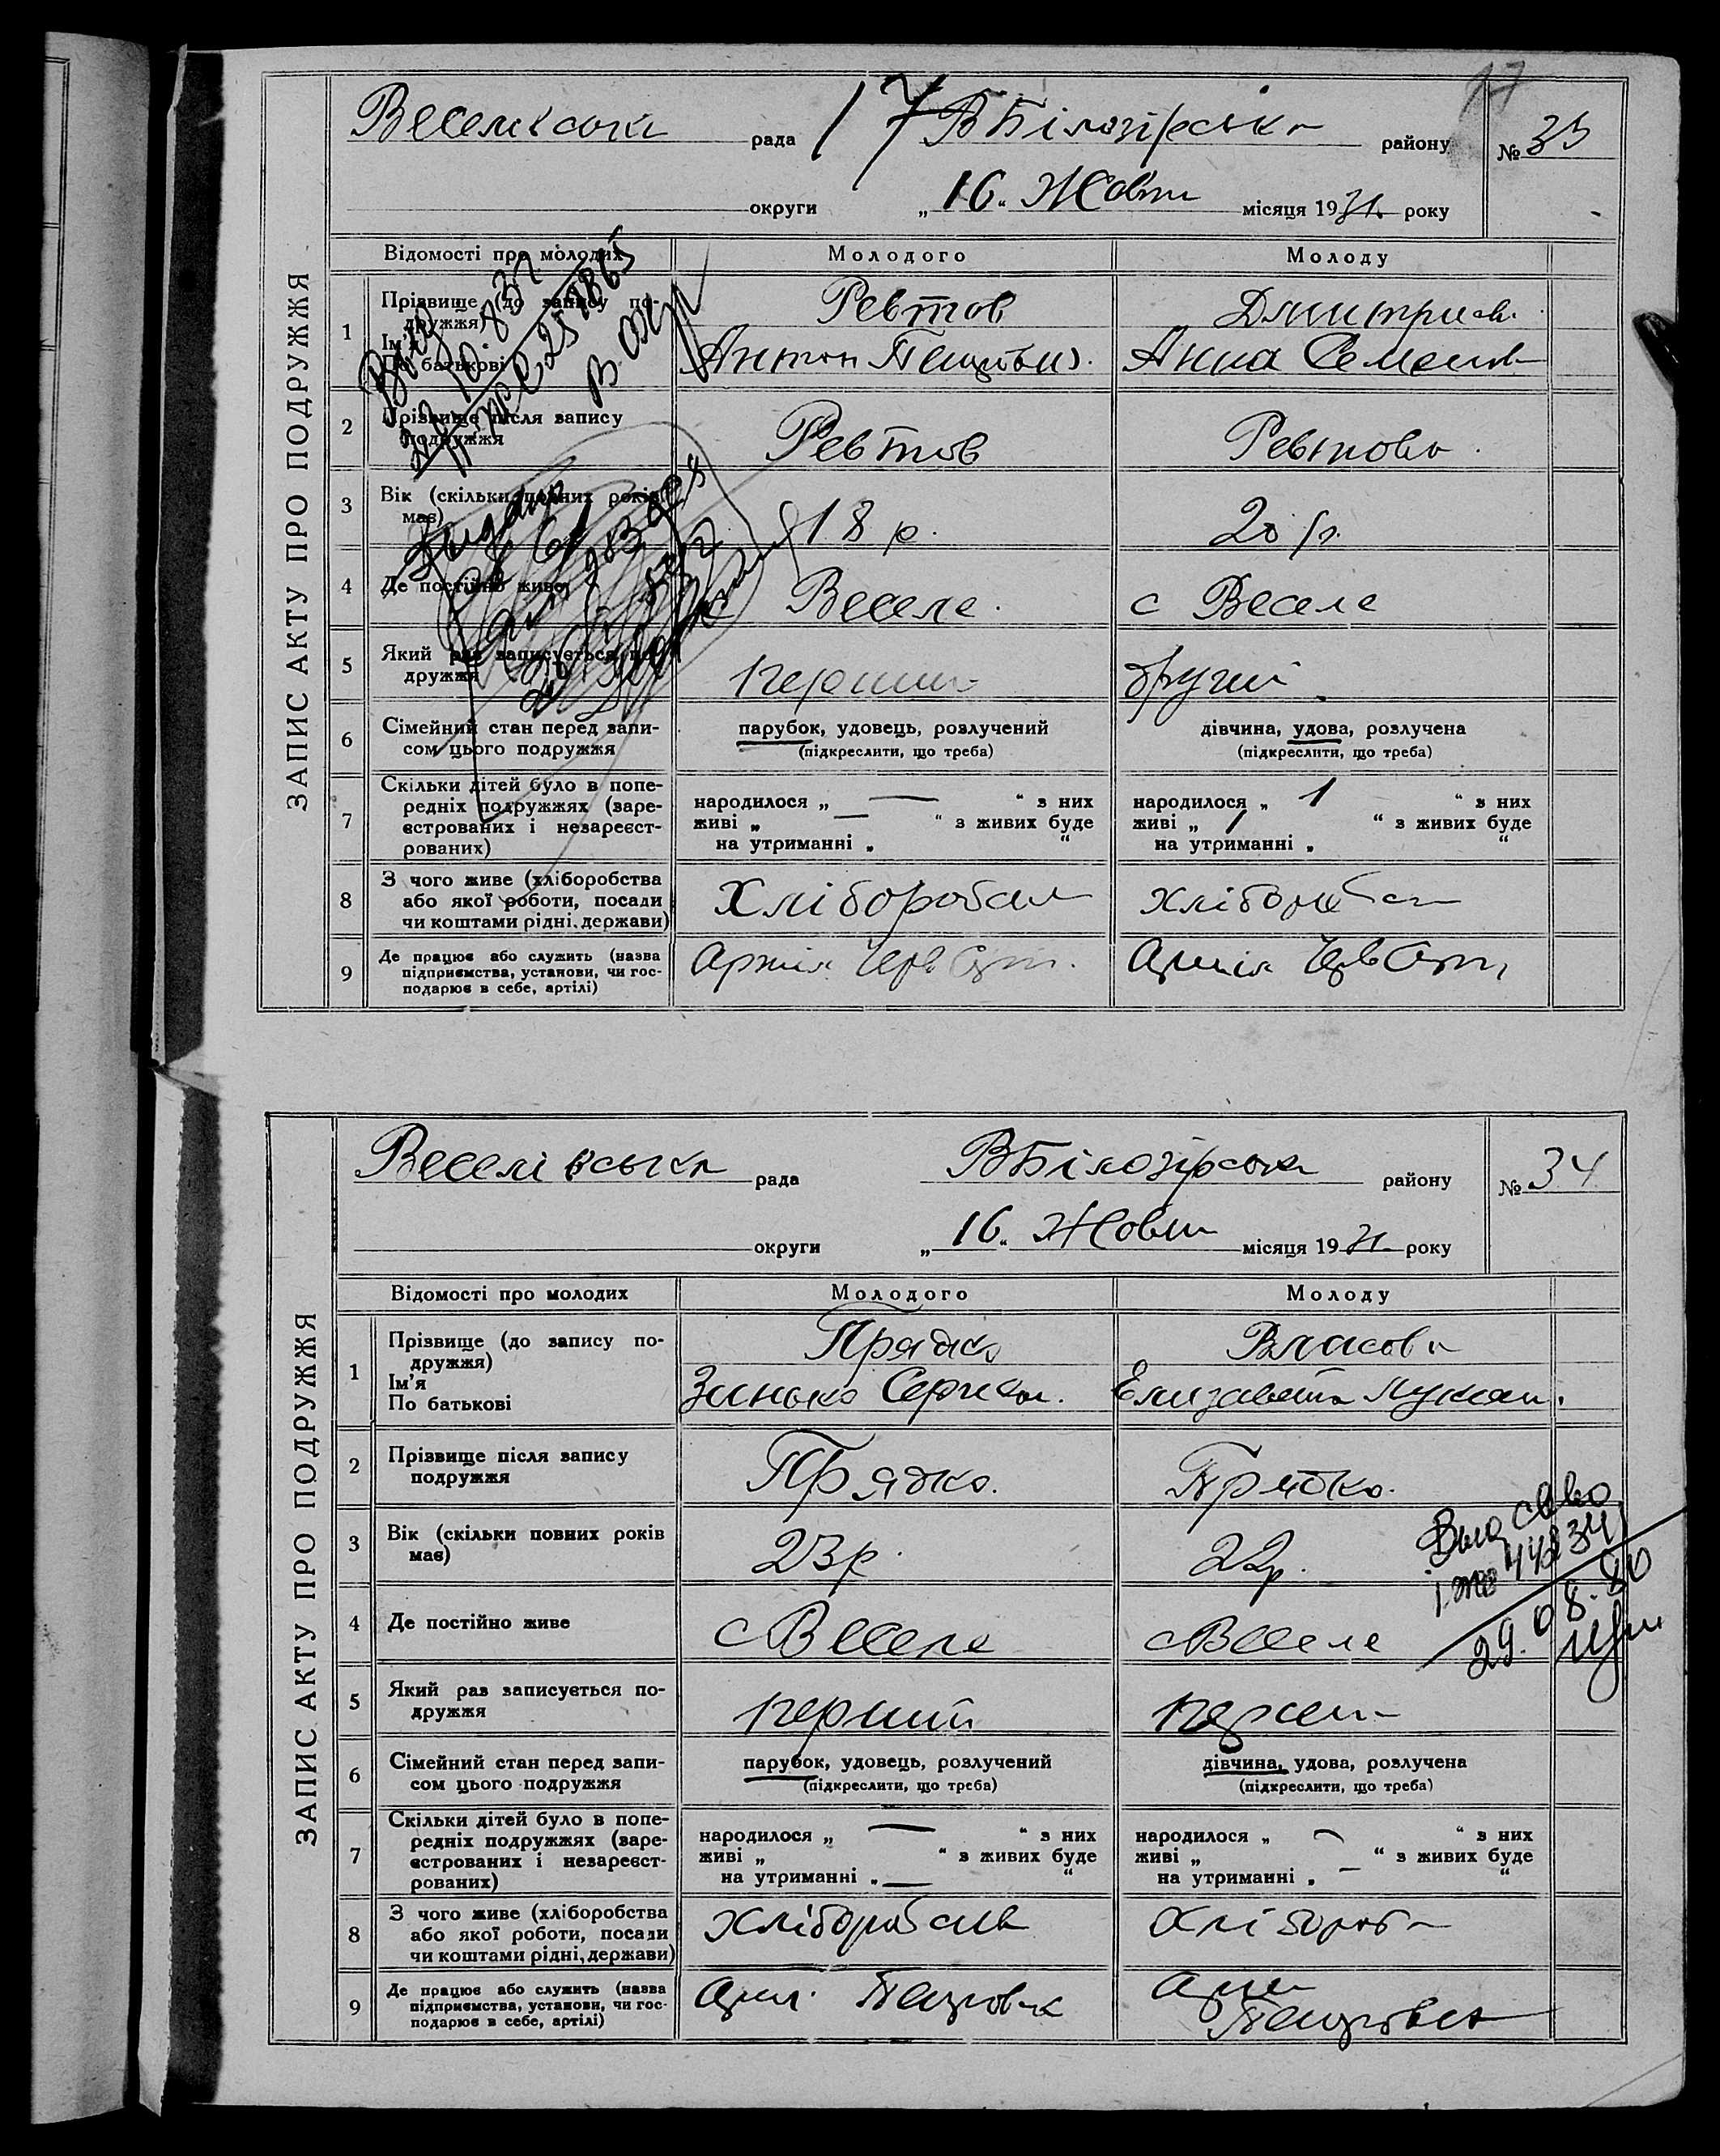 17
Веселівська рада 17 ВБілозірська району № 33
округи „16“ Жовт місяця 1931 року
ЗАПИС АКТУ ПРО ПОДРУЖЖЯ
Відомості про молодих Молодого Молоду
1 Прізвище (до запису подружжя) Ревтов
Ім'я По батькові Антон Анна Семенов
2 Прізвище після запису подружжя Ревтов Ревтова
3 Вік (скільки повних років має) 18 р. 20 р.
4 Де постійно живе Веселе. с Веселе
5 Який раз записується подружжя перший другий
6 Сімейний стан перед записом цього подружжя парубок, удовець, розлучений дівчина, удова, розлучена
(підкреслити, що треба) (підкреслити, що треба)
7 Скільки дітей було в попередніх подружжях (зареєстрованих і незареєстрованих)
народилося „ — “ з них народилося „ 1 “ з них
живі „ — “ з живих буде живі „ 1 “ з живих буде
на утриманні „ “ на утриманні „ “
8 З чого живе (хліборобства або якої роботи, посади чи коштами рідні, держави) Хліборобст хліборобст
9 Де працює або служить (назва підприємства, установи, чи господарює в себе, артілі)
Веселівська рада ВБілозірська району № 34
округи „16“ Жовт місяця 1931 року
ЗАПИС АКТУ ПРО ПОДРУЖЖЯ
Відомості про молодих Молодого Молоду
1 Прізвище (до запису подружжя) Прядко Власова
Ім'я
По батькові Зинько Сергієв. Елизавета Лукян.
2 Прізвище після запису подружжя Прядко. Прядко.
3 Вік (скільки повних років має) 23 р. 22 р.
4 Де постійно живе с Веселе с Веселе
5 Який раз записується подружжя перший перший
6 Сімейний стан перед записом цього подружжя парубок, удовець, розлучений дівчина, удова, розлучена
(підкреслити, що треба) (підкреслити, що треба)
7 Скільки дітей було в попередніх подружжях (зареєстрованих і незареєстрованих)
народилося „ — “ з них народилося „ — “ з них
живі „ “ з живих буде живі „ “ з живих буде
на утриманні „ — “ на утриманні „ — “
8 З чого живе (хліборобства або якої роботи, посади чи коштами рідні, держави) хліборобств хлібороб
9 Де працює або служить (назва підприємства, установи, чи господарює в себе, артілі)
29.08.80